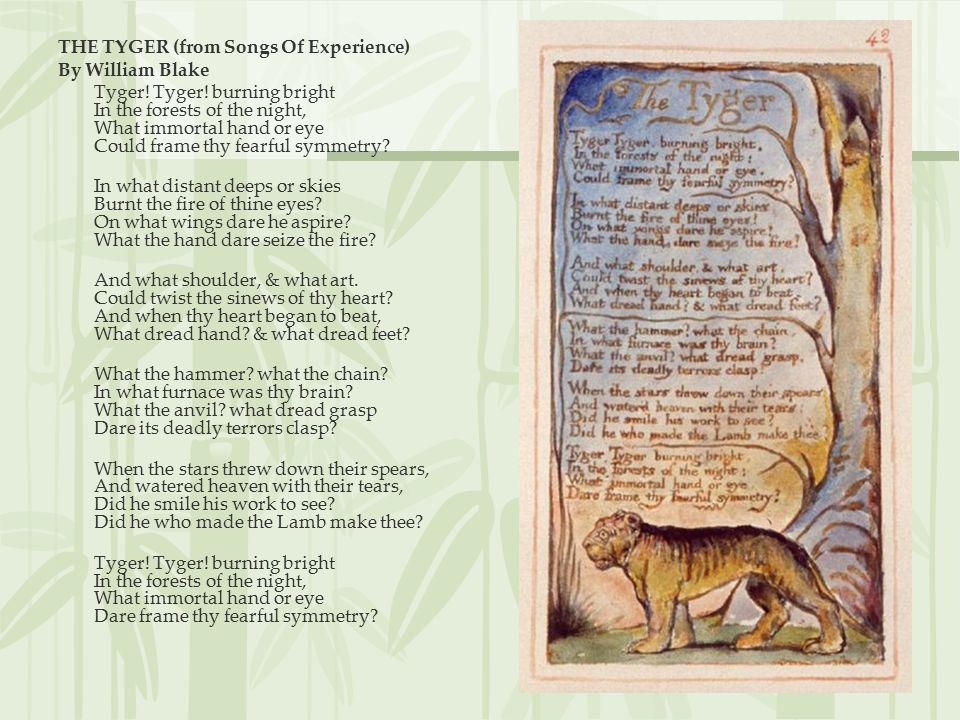 THE TYGER (from Songs Of Experience)
By William Blake
Tyger! Tyger! burning bright
In the forests of the night,
What immortal hand or eye
Could frame thy fearful symmetry?
In what distant deeps or skies
Burnt the fire of thine eyes?
On what wings dare he aspire?
What the hand dare seize the fire?
And what shoulder, & what art.
Could twist the sinews of thy heart?
And when thy heart began to beat,
What dread hand? & what dread feet?
What the hammer? what the chain?
In what furnace was thy brain?
What the anvil? what dread grasp
Dare its deadly terrors clasp?
When the stars threw down their spears,
And watered heaven with their tears,
Did he smile his work to see?
Did he who made the Lamb make thee?
Tyger! Tyger! burning bright
In the forests of the night,
What immortal hand or eye
Dare frame thy fearful symmetry?
42
The Tyger
Tyger Tyger, burning bright,
In the forests of the night;
What immortal hand or eye,
Could frame thy fearful symmetry?
In what distant deeps or skies
Burnt the fire of thine eyes!
On what wings dare he aspire?
What the hand, dare sieze the fire?
And what shoulder, & what art,
Could twist the sinews of thy heart?
And when thy heart began to beat,
What dread hand? & what dread feet?
What the hammer? what the chain,
In what furnace was thy brain?
What the anvil? what dread grasp,
Dare its deadly terrors clasp!
When the stars threw down their spears
And water'd heaven with their tears:
Did he smile his work to see?
Did he who made the Lamb make thee?
Tyger Tyger burning bright,
In the forests of the night:
What immortal hand or eye,
Dare frame thy fearful symmetry?